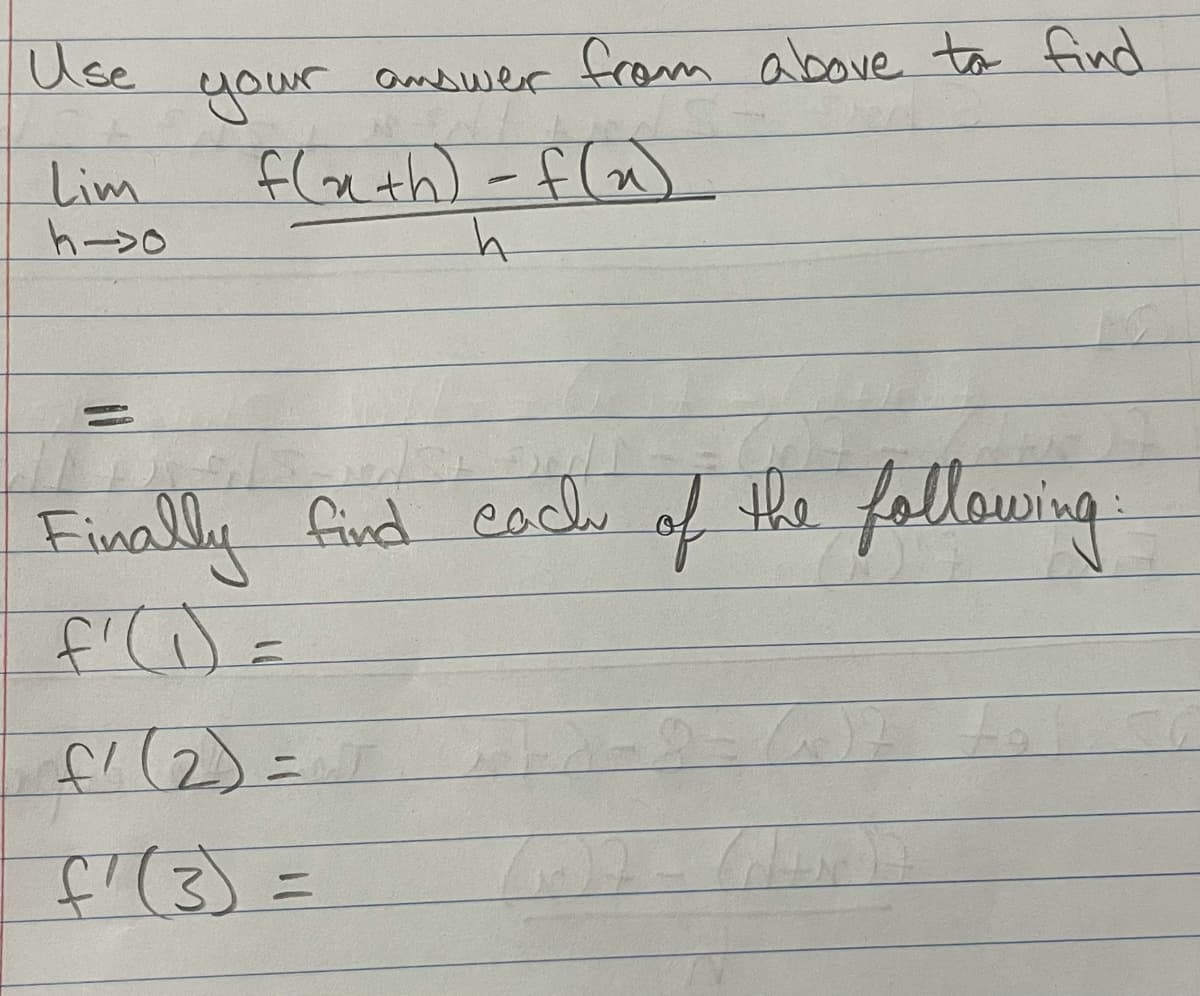 Use your answer from above to find
Lim f(x+h) - f(x)
h->0 h
=
Finally find each of the following:
f'(1) =
f'(2) =
f'(3) =